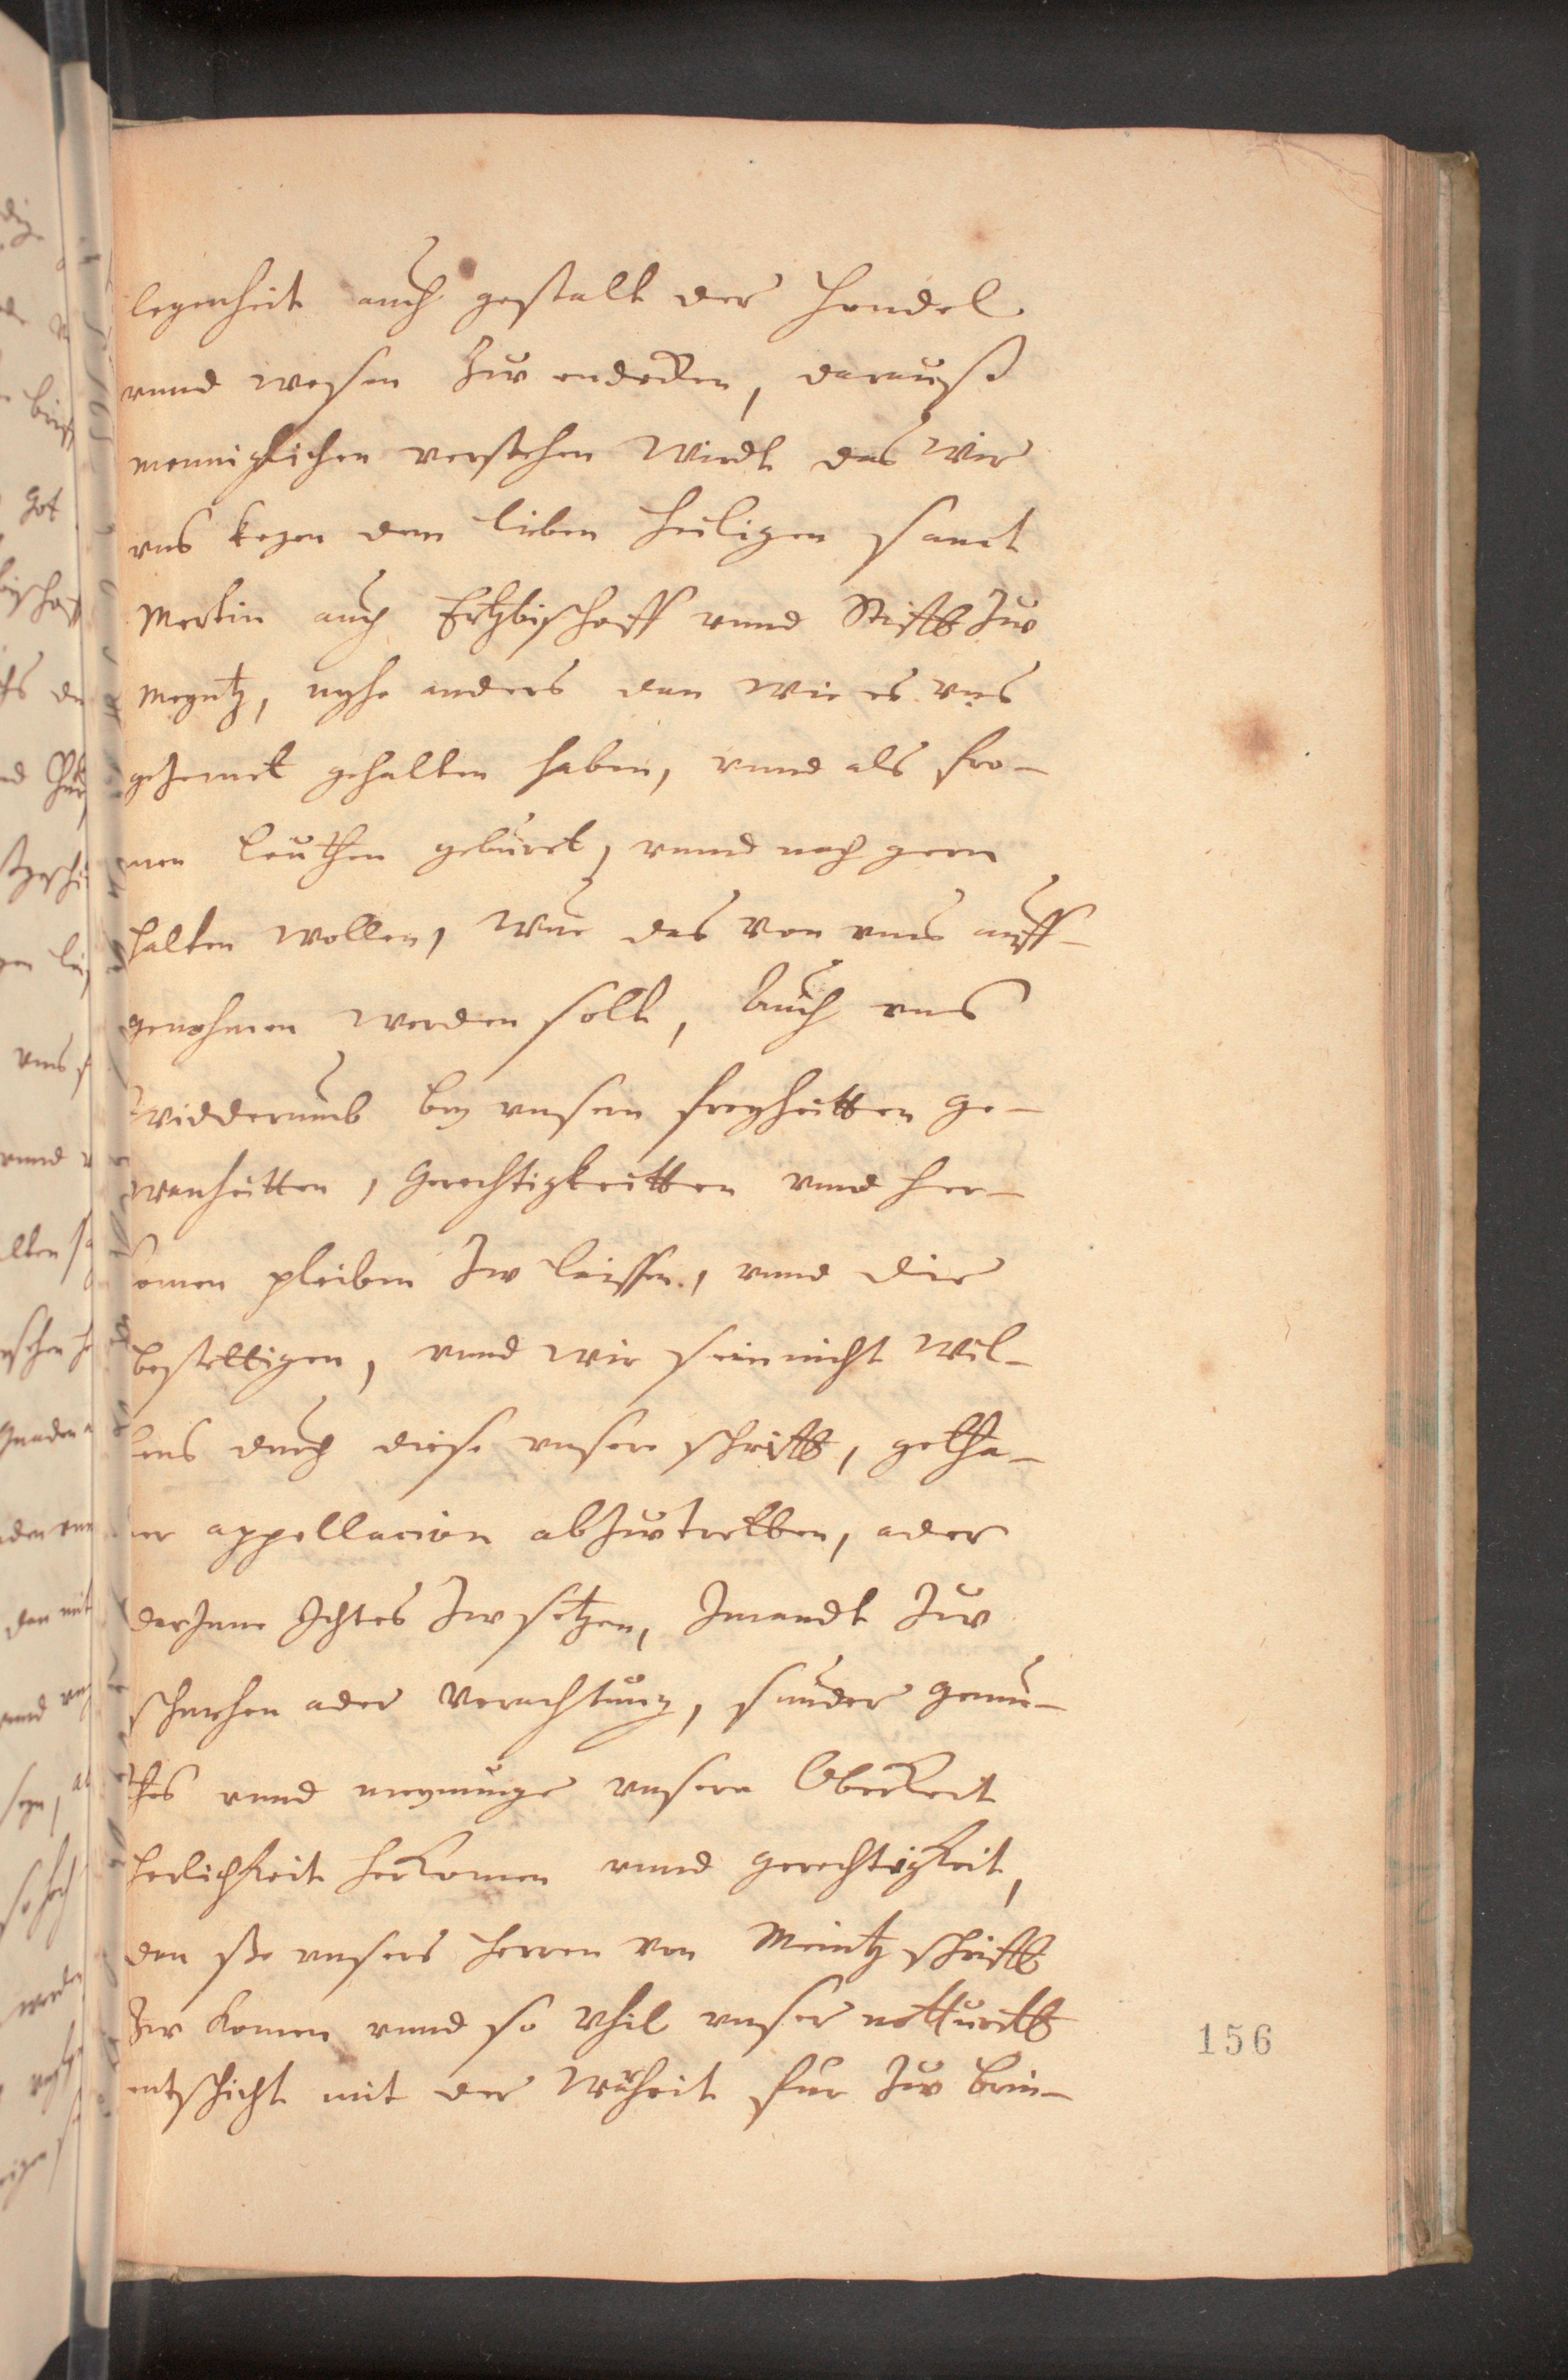 legenheit auch gestalt der handel
vnnd wesen Zuw endecken, darauß
menniglichen verstehen wirdt das wir
vns kegen dem lieben heiligen sanct
Mertin auch Ertzbischoff vnnd Stifft Zuw
Meyntz, nyhe anders dan wie es vns
geZemet gehalten haben, vnnd als fro-
men leuthen geburet, vnnd noch gern
halten wollen, wue das von vnns auff-
genohmen werden sollt, Auch vns
widderumb bey vnsern freyheitten ge-
wanheitten, Gerechtigkeitten vnnd her-
komen pleiben Zw laissen, vnnd die
bestettigen, vnnd wir sein nicht wil-
lens durch diese vnsere schrifft, getha-
ner appellacion abZuwtretten, ader
darJnne Jchtes Zw setzen, Jmandt Zuw
schmehen ader verachtung, sunder gemu-
thes vnnd meynunge vnsere Oberkeit
herlichkeit herkomen vnnd gerechtigkeit,
den vnsers herren von Meintz schrifft
Zw komen vnnd so vhil vnser notturfft
entschicht mit der warheit fur Zuw brin-
156